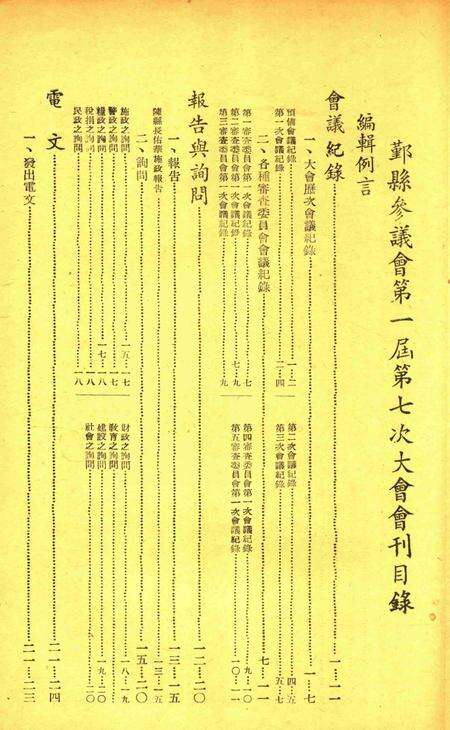 鄞縣參議會第一屆第七次大會會刊目錄
編輯例言
會議紀錄……一—一一
一、大會歷次會議紀錄……一—七
預備會議紀錄……一—二
第二次會議紀錄……四—五
第一次會議紀錄……二—四
第三次會議紀錄……五—七
二、各種審查委員會會議紀錄……七—一一
第一審查委員會第一次會議紀錄……七
第四審查委員會第一次會議紀錄……九—一〇
第二審查委員會第一次會議紀錄……七—九
第五審查委員會第一次會議紀錄……一〇—一一
第三審查委員會第一次會議紀錄……九
報告與詢問……一二—二〇
一、報告……一三—一五
陳縣長佑華施政報告……一三—一五
二、詢問……一五—二〇
施政之詢問……一五—一七
財政之詢問……一八—一九
警政之詢問……一七
教育之詢問……一九
糧政之詢問……一七—一八
建設之詢問……一九—二〇
稅捐之詢問……一八
社會之詢問……二〇
民政之詢問……一八
電文……二一—二四
一、發出電文……二一—二三